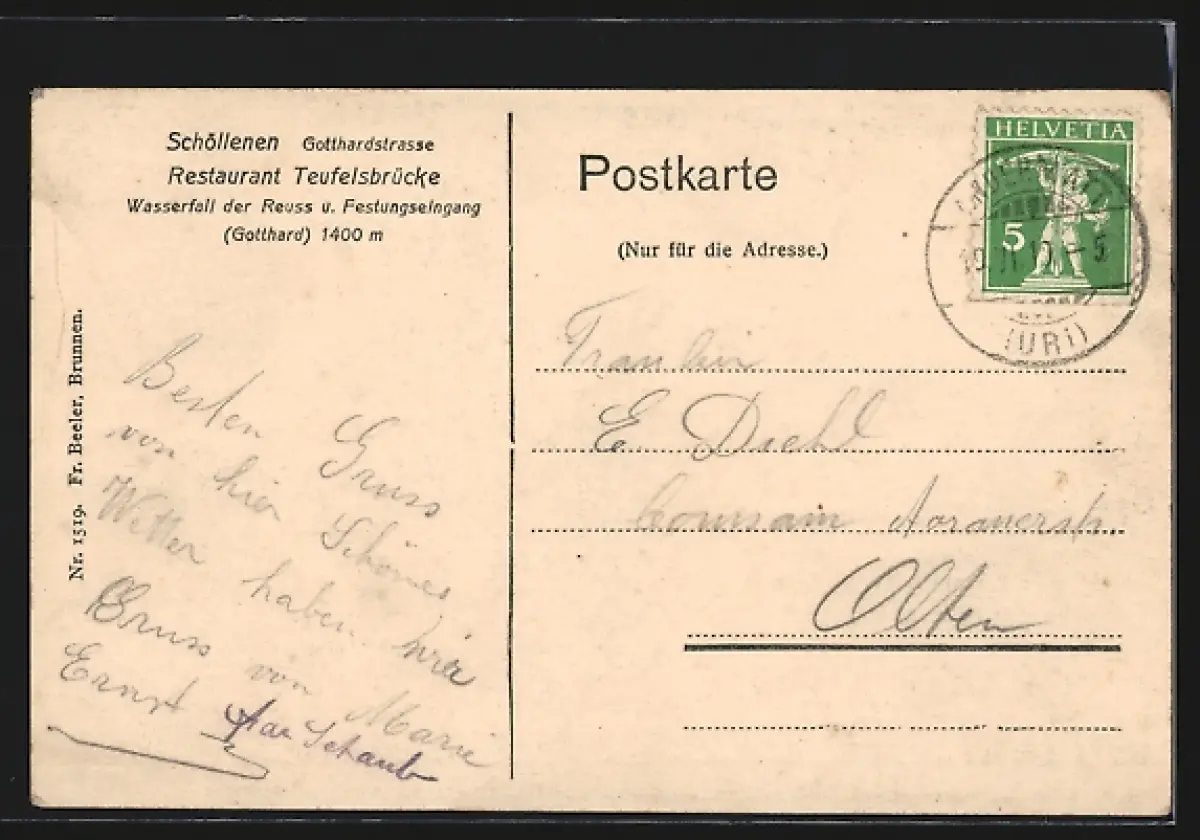 Schöllenen Gotthardstrasse
Restaurant Teufelsbrücke
Wasserfall der Reuss u. Festungseingang
(Gotthard) 1400 m
Nr. 1519. Fr. Beeler, Brunnen.
Besten Gruss
von hier Schönes
Wetter haben wir
Gruss von Marie
Ernst
Schaub
Postkarte
(Nur für die Adresse.)
HELVETIA
5
ANDERMATT
(URI)
Fraulein
E. Diehl
Aarauerstr.
Olten